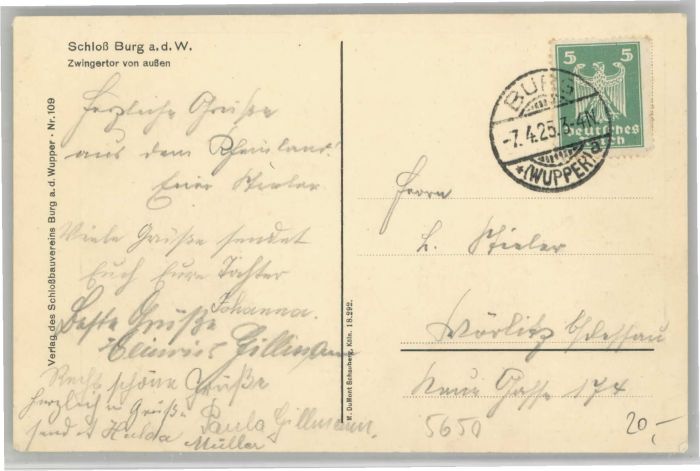 Schloß Burg a. d. W.
Zwingertor von außen
Herzliche Grüße
aus dem Rheinland!
Euer
Viele Grüße sendet
Euch Eure Tochter
Johanna.
Beste Grüße
Heinrich Gillmann
Recht schöne Grüße
Paula Gillmann.
Herzliche Grüße
sendet Hulda
Müller
Verlag des Schloßbauvereins Burg a. d. Wupper · Nr. 109
M. DuMont Schauberg, Köln. 18.292.
5 5
Deutsches
Reich
BURG
-7.4.25. 3-4N.
*(WUPPER) a
Herrn
Wörlitz b/Dessau
Neue Gasse 174
5650
20,-